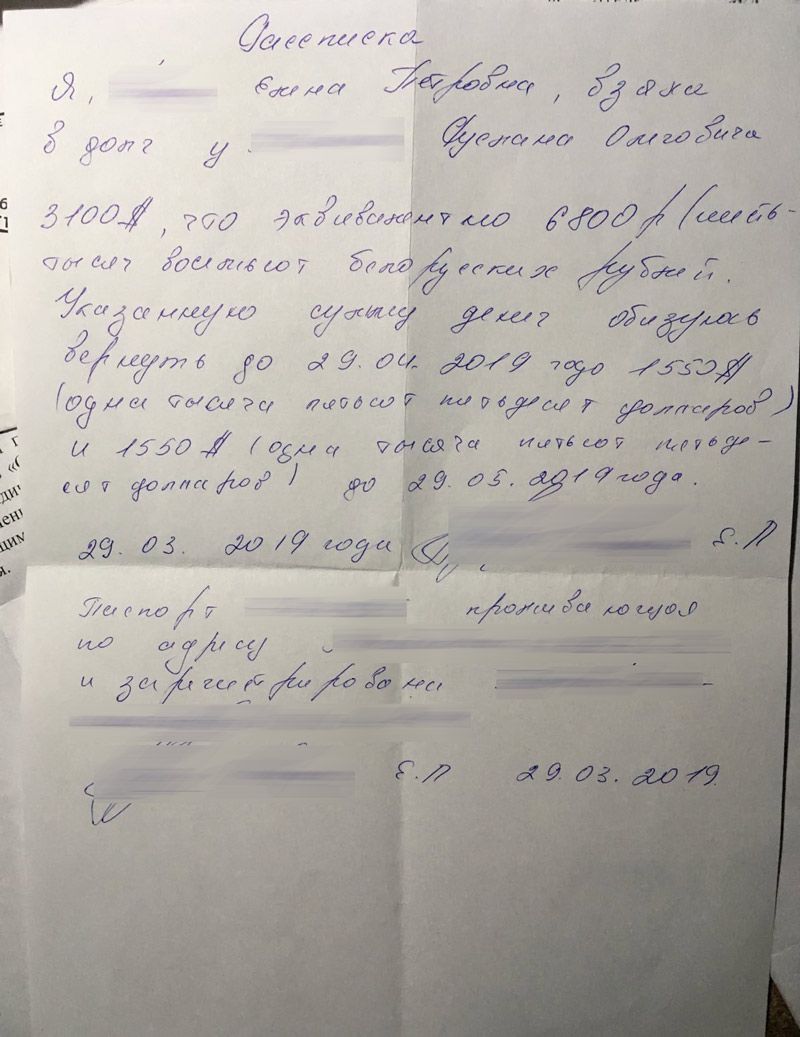 Расписка
Я, Елена Петровна, взяла
в долг у Руслана Олеговича
3100$, что эквивалентно 6800 р (шесть-
тысяч восемьсот белорусских рублей.
Указанную сумму денег обязуюсь
вернуть до 29.04. 2019 года 1550$
(одна тысяча пятьсот пятьдесят долларов)
и 1550$ (одна тысяча пятьсот пятьде-
сят долларов) до 29.05.2019 года.
29.03. 2019 года Е.П
Паспорт проживающая
по адресу
и зарегистрирована
Е.П 29.03.2019